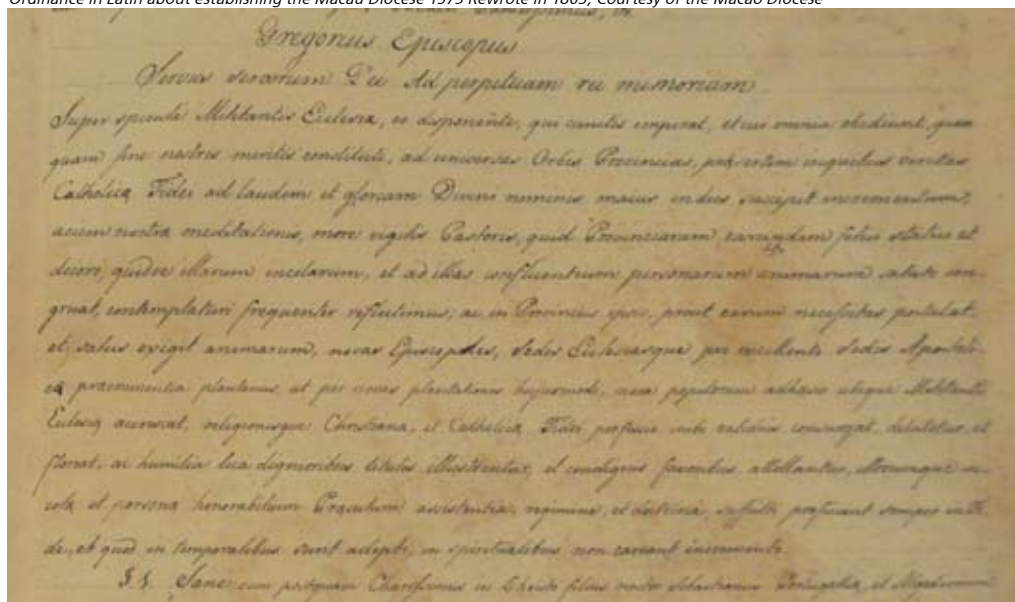 Ordinance in Latin about establishing the Macau Diocese 1575 Rewrote in 1863, Courtesy of the Macao Diocese
Gregorius Episcopus
Servus servorum Dei Ad perpetuam rei memoriam
Super specula Militantis Ecclesia, eo disponente, qui cunctis imperat, et cui omnia obediunt, quam
quam sine nostris meritis constituti, ad universas Orbis Provincias, in quibus veritas
Catholicę Fidei ad laudem et gloriam Divini nominis maius in dies suscipit incrementum,
aciem nostrę meditationis, more vigilis Pastoris, quid Provinciarum earumdem statui et
decori, quidve illarum incolarum, et ad illas confluentium personarum animarum saluti con-
gruat, contemplaturi frequenter reflectimus; ac in Provinciis ipsis, prout earum necessitas postulat,
et salus exigit animarum, novas Episcopales, Sedes Ecclesiasque pro excellenti Sedis Apostoli-
cę praeminentia plantamus ut per novas plantationes hujusmodi, nova populorum adhæsio Militanti
Ecclesię accrescat, religionisque Christianę, et Catholicę Fidei professio inde validius consurgat, dilatetur, et
floreat, ac humilia loca dignioribus titulis illustrentur, et condignis favoribus attollantur, illorumque in-
colę et personę honorabilium Pręsulum assistentia, regimine, et doctrina suffulti proficiant semper in fi-
de, et quod in temporalibus sunt adepti, in spiritualibus non careant incremento.
§.1. Sane cum postquam Charissimus in Christo filius noster Sebastianus Portugallię, et Algarbiorum